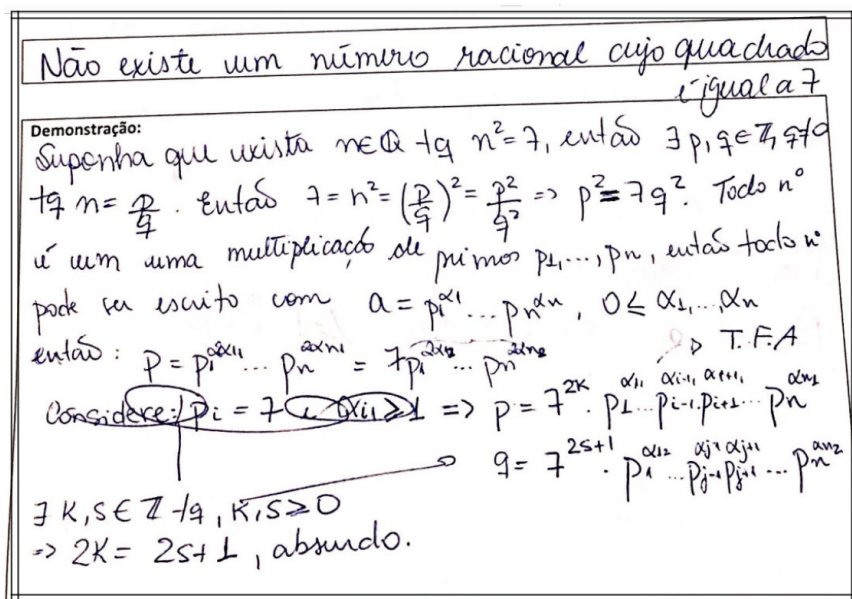 Não existe um número racional cujo quadrado
é igual a 7
Demonstração:
Suponha que exista n∈ℚ tq n²=7, então ∃ p,q∈ℤ, q≠0
tq n= p/q. Então 7=n²=(p/q)²=p²/q² => p²=7q². Todo nº
é um uma multiplicação de primos p₁,...,pₙ, então todo nº
pode ser escrito com a = p₁^α₁ ... pₙ^αₙ, 0 ≤ α₁,...,αₙ
então: p = p₁^2α₁₁ ... pₙ^2αₙ₁ = 7p₁^2α₁₂ ... pₙ^2αₙ₂
T.F.A
Considere: pᵢ = 7 e αᵢ₁≥1 => p = 7^2K . p₁^α₁₁ ... pᵢ₋₁^αᵢ₋₁,₁ pᵢ₊₁^αᵢ₊₁,₁ ... pₙ^αₙ₁
q = 7^2s+1 . p₁^α₁₂ ... pⱼ₋₁^αⱼ₋₁ pⱼ₊₁^αⱼ₊₁ ... pₙ^αₙ₂
∃ K,S∈ℤ tq, K,S≥0
=> 2K = 2s+1, absurdo.